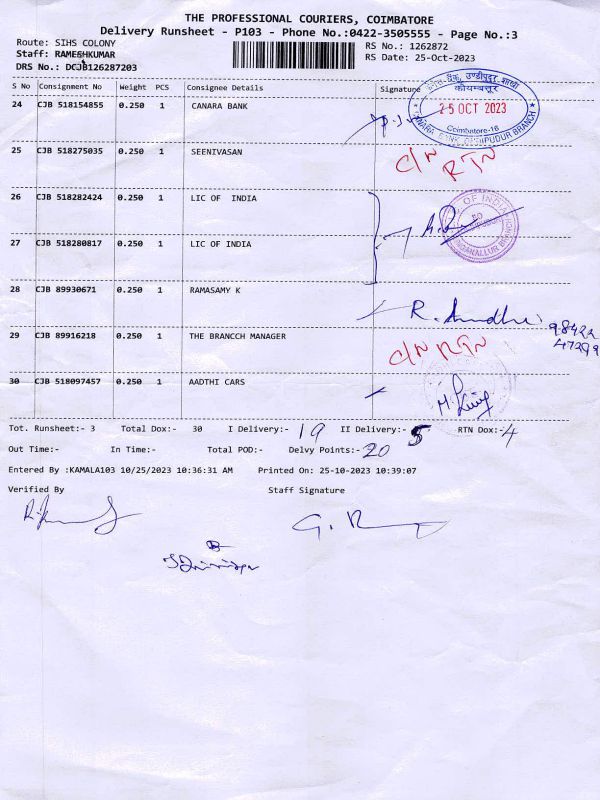 THE PROFESSIONAL COURIERS, COIMBATORE
Delivery Runsheet - P103 - Phone No.:0422-3505555 - Page No.:3
Route: SIHS COLONY
RS No.: 1262872
Staff: RAMESHKUMAR
RS Date: 25-Oct-2023
DRS No.: DCJB126287203
S No Consignment No Weight PCS Consignee Details Signature
24 CJB 518154855 0.250 1 CANARA BANK
25 OCT 2023
Coimbatore-16
25 CJB 518275035 0.250 1 SEENIVASAN C/N RTN
26 CJB 518282424 0.250 1 LIC OF INDIA
27 CJB 518280817 0.250 1 LIC OF INDIA
28 CJB 89930671 0.250 1 RAMASAMY K
98422
47299
29 CJB 89916218 0.250 1 THE BRANCCH MANAGER C/N RTN
30 CJB 518097457 0.250 1 AADTHI CARS
Tot. Runsheet:- 3 Total Dox:- 30 I Delivery:- 19 II Delivery:- 5 RTN Dox:- 4
Out Time:- In Time:- Total POD:- Delvy Points:- 20
Entered By :KAMALA103 10/25/2023 10:36:31 AM Printed On: 25-10-2023 10:39:07
Verified By Staff Signature